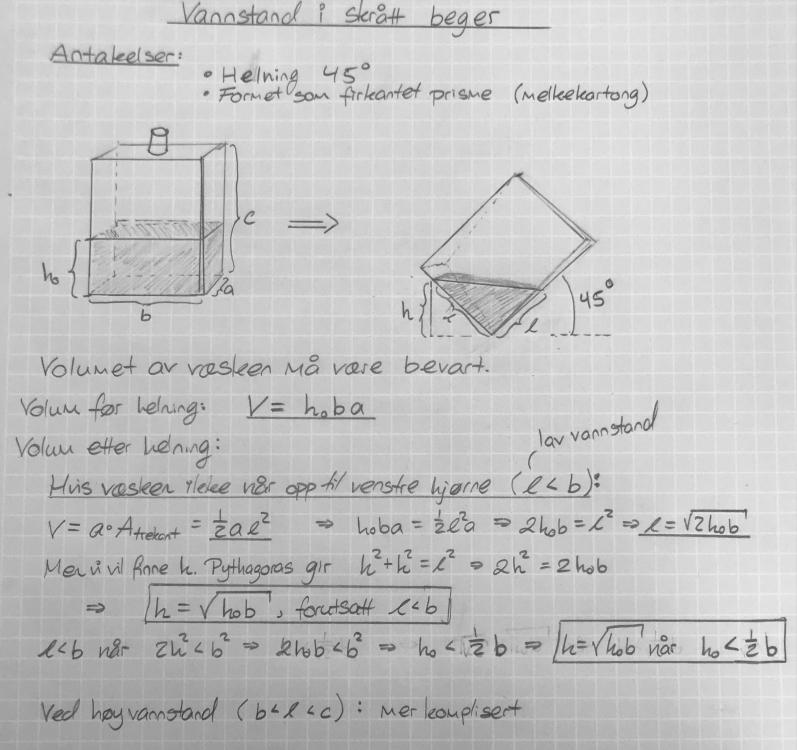 Vannstand i skrått beger
Antakelser:
• Helning 45°
• Formet som firkantet prisme (melkekartong)
c
h₀
a
b
⇒
h
l
l
45°
Volumet av væsken må være bevart.
Volum før helning: V = h₀ba
Volum etter helning:
lav vannstand
Hvis væsken ikke når opp til venstre hjørne (l < b):
V = a · A_trekant = ½al² ⇒ h₀ba = ½l²a ⇒ 2h₀b = l² ⇒ l = √2h₀b
Men vi vil finne h. Pythagoras gir h² + h² = l² ⇒ 2h² = 2h₀b
⇒ h = √h₀b, forutsatt l < b
l < b når 2h² < b² ⇒ 2h₀b < b² ⇒ h₀ < ½b ⇒ h = √h₀b når h₀ < ½b
Ved høy vannstand (b < l < c): Mer komplisert